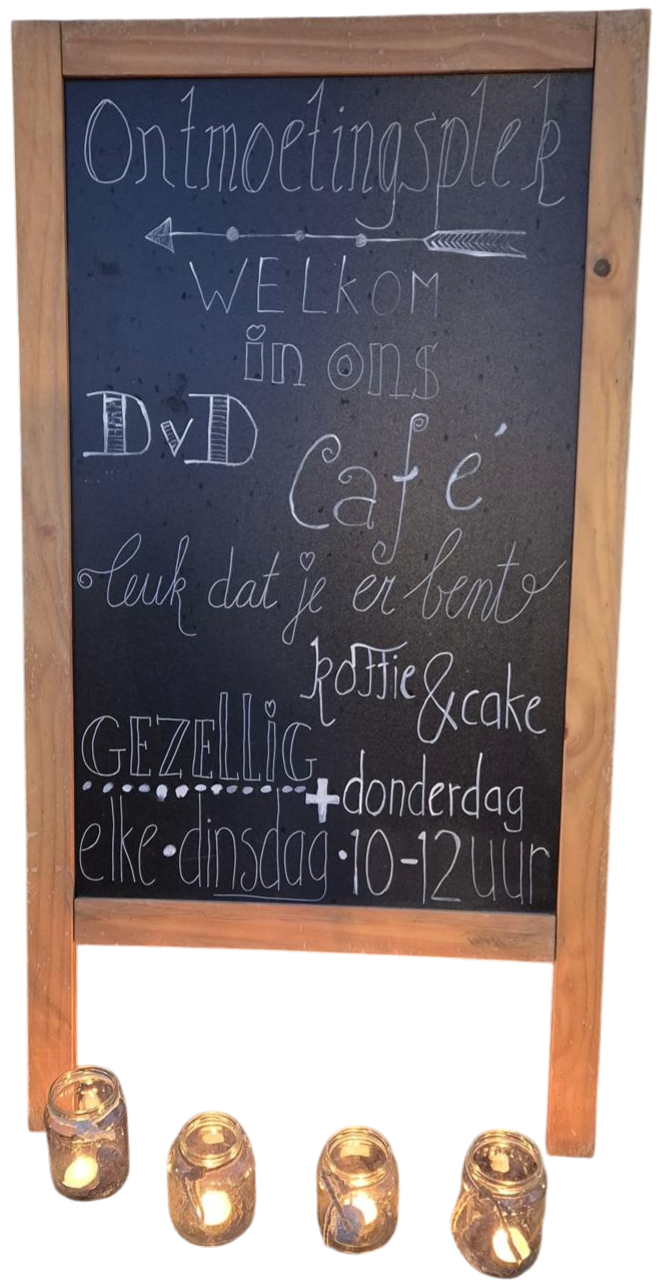 Ontmoetingsplek
WELKOM
in ons
DvD
Café
leuk dat je er bent
koffie & cake
GEZELLIG
+ donderdag
elke • dinsdag • 10-12 uur